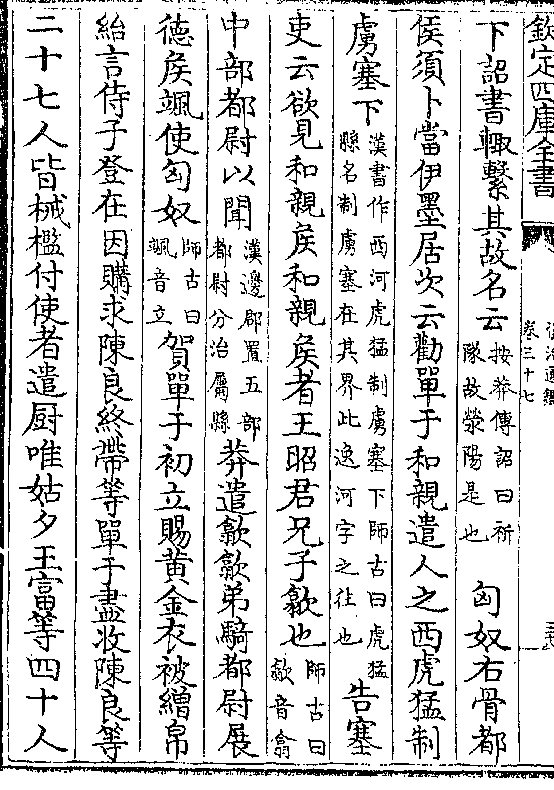 欽定四庫全書
卷三十七
下詔書輙繫其故名云按莽傳詔曰祈隊故滎陽是也匈奴右骨都
侯須卜當伊墨居次云勸單于和親遣人之西虎猛制
虜塞下漢書作西河虎猛制虜塞下師古曰虎猛縣名制虜塞在其界此逸河字之往也告塞
吏云欲見和親矦和親矦者王昭君兄子歙也師古曰歙音翕
中部都尉以聞漢邊郡置五部都尉分治屬縣莽遣歙歙弟騎都尉展
徳矦颯使匈奴師古曰颯音立賀單于初立賜黄金衣被繒帛
紿言侍子登在因購求陳良終帶等單于盡收陳良等
二十七人皆械檻付使者遣厨唯姑夕王富等四十人